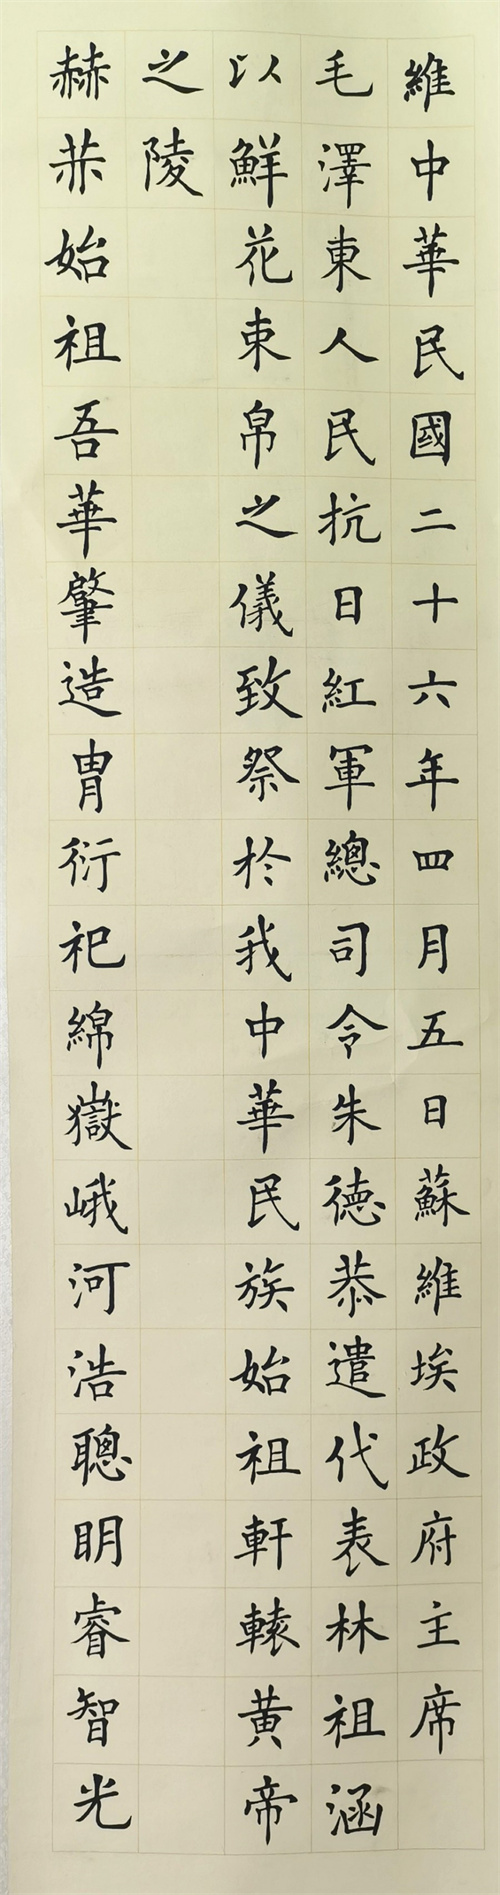 維中華民國二十六年四月五日蘇維埃政府主席
毛澤東人民抗日紅軍總司令朱德恭遣代表林祖涵
以鮮花束帛之儀致祭於我中華民族始祖軒轅黃帝
之陵
赫赫始祖吾華肇造胄衍祀綿嶽峨河浩聰明睿智光